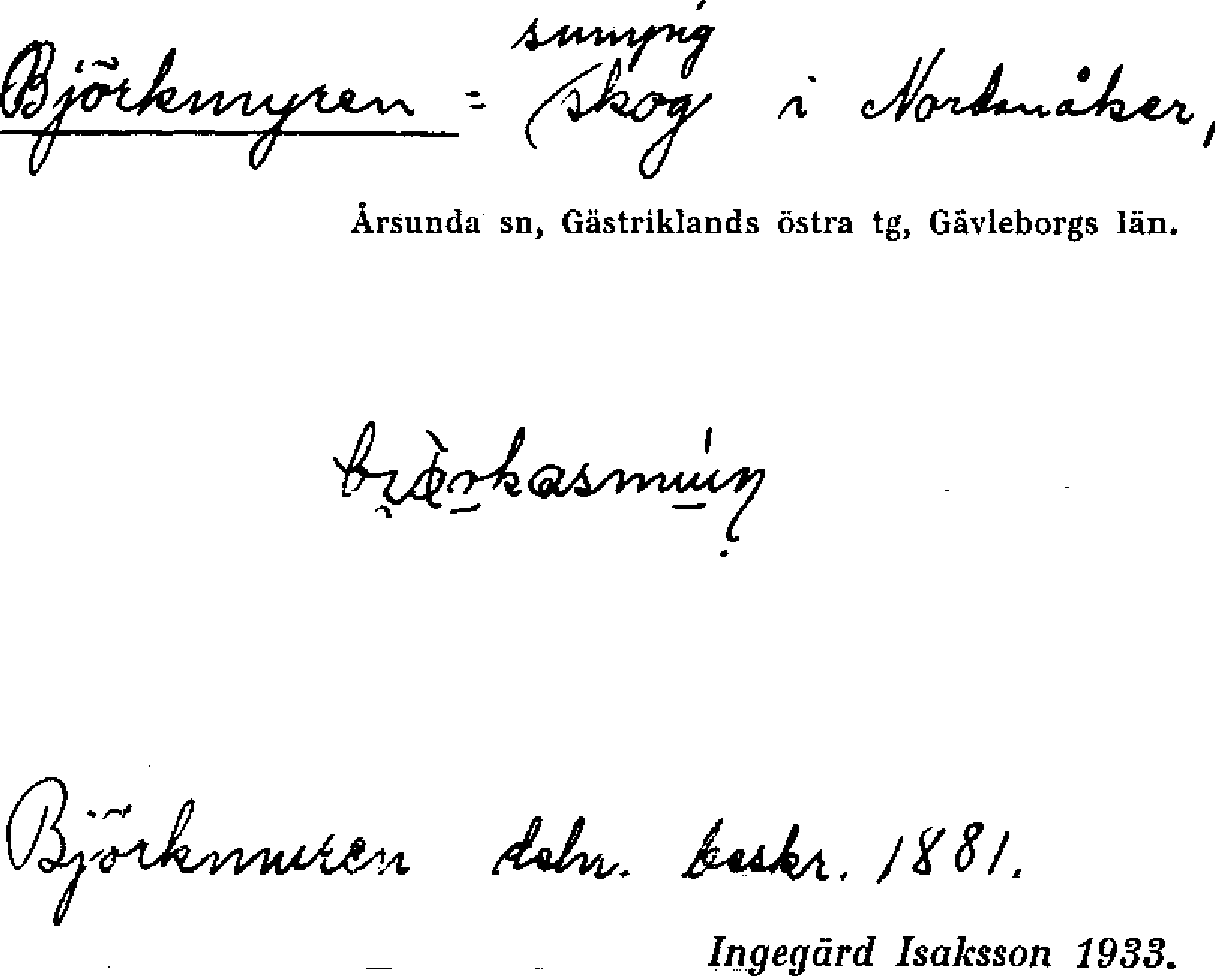 Björkmyren = sumpig skog i Nordanåker,
Årsunda sn, Gästriklands östra tg, Gävleborgs län.
Björkmuren deln. beskr. 1881.
Ingegärd Isaksson 1933.